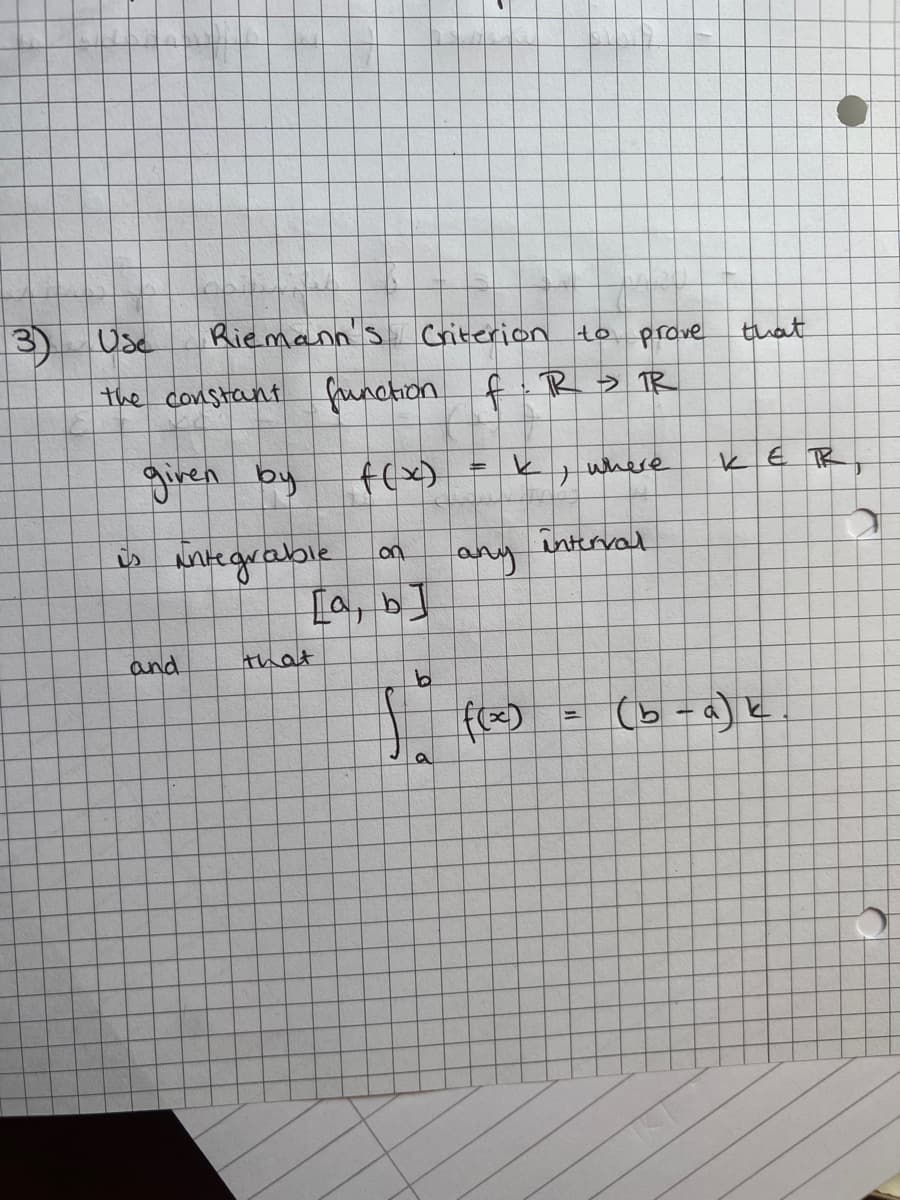 3) Use Riemann's Criterion to prove that
the constant function f : ℝ → ℝ
given by f(x) = k, where k ∈ ℝ,
is integrable on any interval
[a, b]
and that
∫ₐᵇ f(x) = (b - a) k.